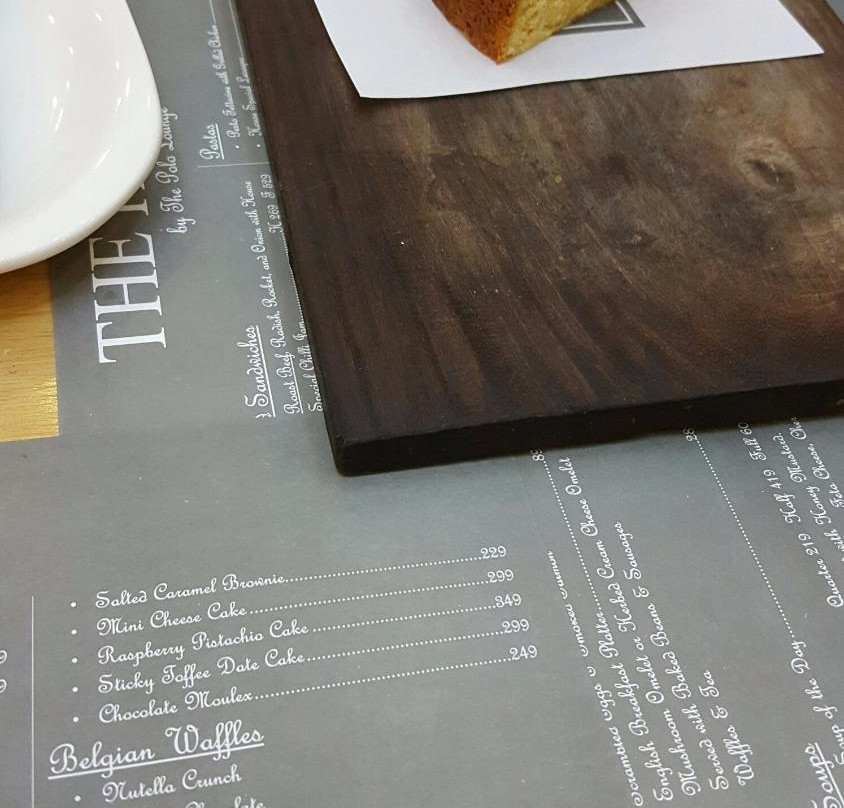 THE
by The Polo Lounge
Pastas
• Pasta Fettuccine with Grilled Chicken
• House Special Lasagna
Sandwiches
Roast Beef, Radish, Rocket, and Onion with House
Special Chilli Jam H 269 F 529
• Salted Caramel Brownie 229
• Mini Cheese Cake 299
• Raspberry Pistachio Cake 349
• Sticky Toffee Date Cake 299
• Chocolate Moulex 249
Belgian Waffles
• Nutella Crunch
Chocolate
Scrambled Eggs & Smoked
English Breakfast Platter
Omelet or Herbed Cream Cheese Omelet
Mushroom Baked Beans & Sausages
Served with Tea
Waffles &
Soups
Soup of the Day
Quarter 219 Half 419 Full
with Honey Mustard,
Feta Cheese,